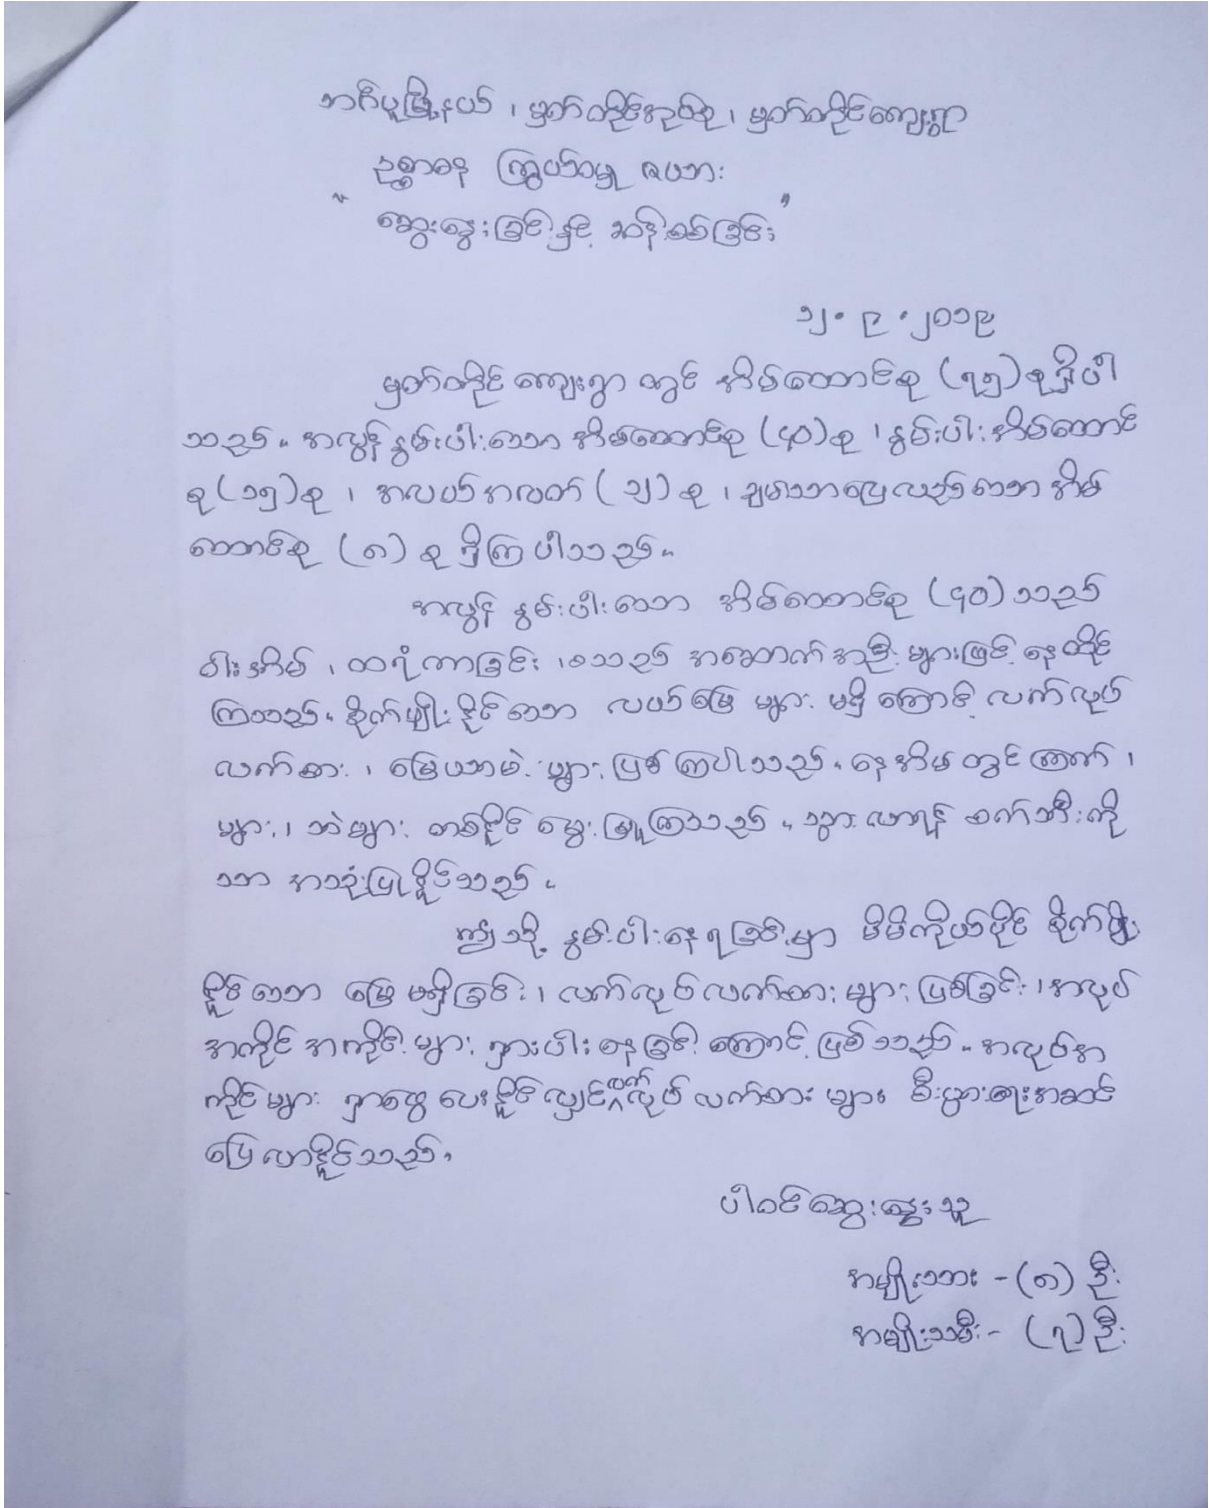 အင်္ဂပူမြို့နယ် ၊ မှတ်တိုင်အုပ်စု ၊ မှတ်တိုင်ကျေးရွာ
ဥစ္စာဓန ကြွယ်ဝမှု ဇယား
" ဆွေးနွေးခြင်းနှင့် ဆန်းစစ်ခြင်း "
၁၂. ၉ . ၂၀၁၉
မှတ်တိုင် ကျေးရွာ တွင် အိမ်ထောင်စု (၇၅) စုရှိပါ
သည်။ အလွန်နွမ်းပါးသော အိမ်ထောင်စု (၄၀) စု ၊ နွမ်းပါးအိမ်ထောင်
စု (၁၅) စု ၊ အလယ်အလတ် (၁၂) စု ၊ ချမ်းသာပြေလည်သော အိမ်
ထောင်စု (၈) စု ရှိကြပါသည်။
အလွန် နွမ်းပါးသော အိမ်ထောင်စု (၄၀) သည်
ဝါးအိမ် ၊ ထရံကာခြင်း ၊ စသည် အဆောက်အဦးများဖြင့် နေထိုင်
ကြသည်။ စိုက်ပျိုးနိုင်သော လယ်မြေ များ မရှိကြောင့် လက်လုပ်
လက်စား ၊ မြေယာမဲ့ များ ဖြစ်ကြပါသည်။ နေအိမ်တွင် ကြက် ၊
များ ၊ ဘဲများ တစ်နိုင် မွေးမြူကြသည်။ သွားလာရန် စက်ဘီးကို
သာ အသုံးပြုနိုင်သည်။
ဤသို့ နွမ်းပါးနေရခြင်းမှာ မိမိကိုယ်ပိုင် စိုက်ပျိုး
နိုင်သော မြေ မရှိခြင်း ၊ လက်လုပ်လက်စား များ ဖြစ်ခြင်း ၊ အလုပ်
အကိုင် အကိုင် များ ရှားပါးနေခြင်းကြောင့် ဖြစ်သည်။ အလုပ်အ
ကိုင်များ ရှာဖွေ ပေးနိုင်လျှင် လက်လုပ်လက်စား များ စီးပွားရေးအဆင်
ပြေလာနိုင်သည်။
ပါဝင်ဆွေးနွေးသူ
အမျိုးသား - (၈) ဦး
အမျိုးသမီး - (၇) ဦး